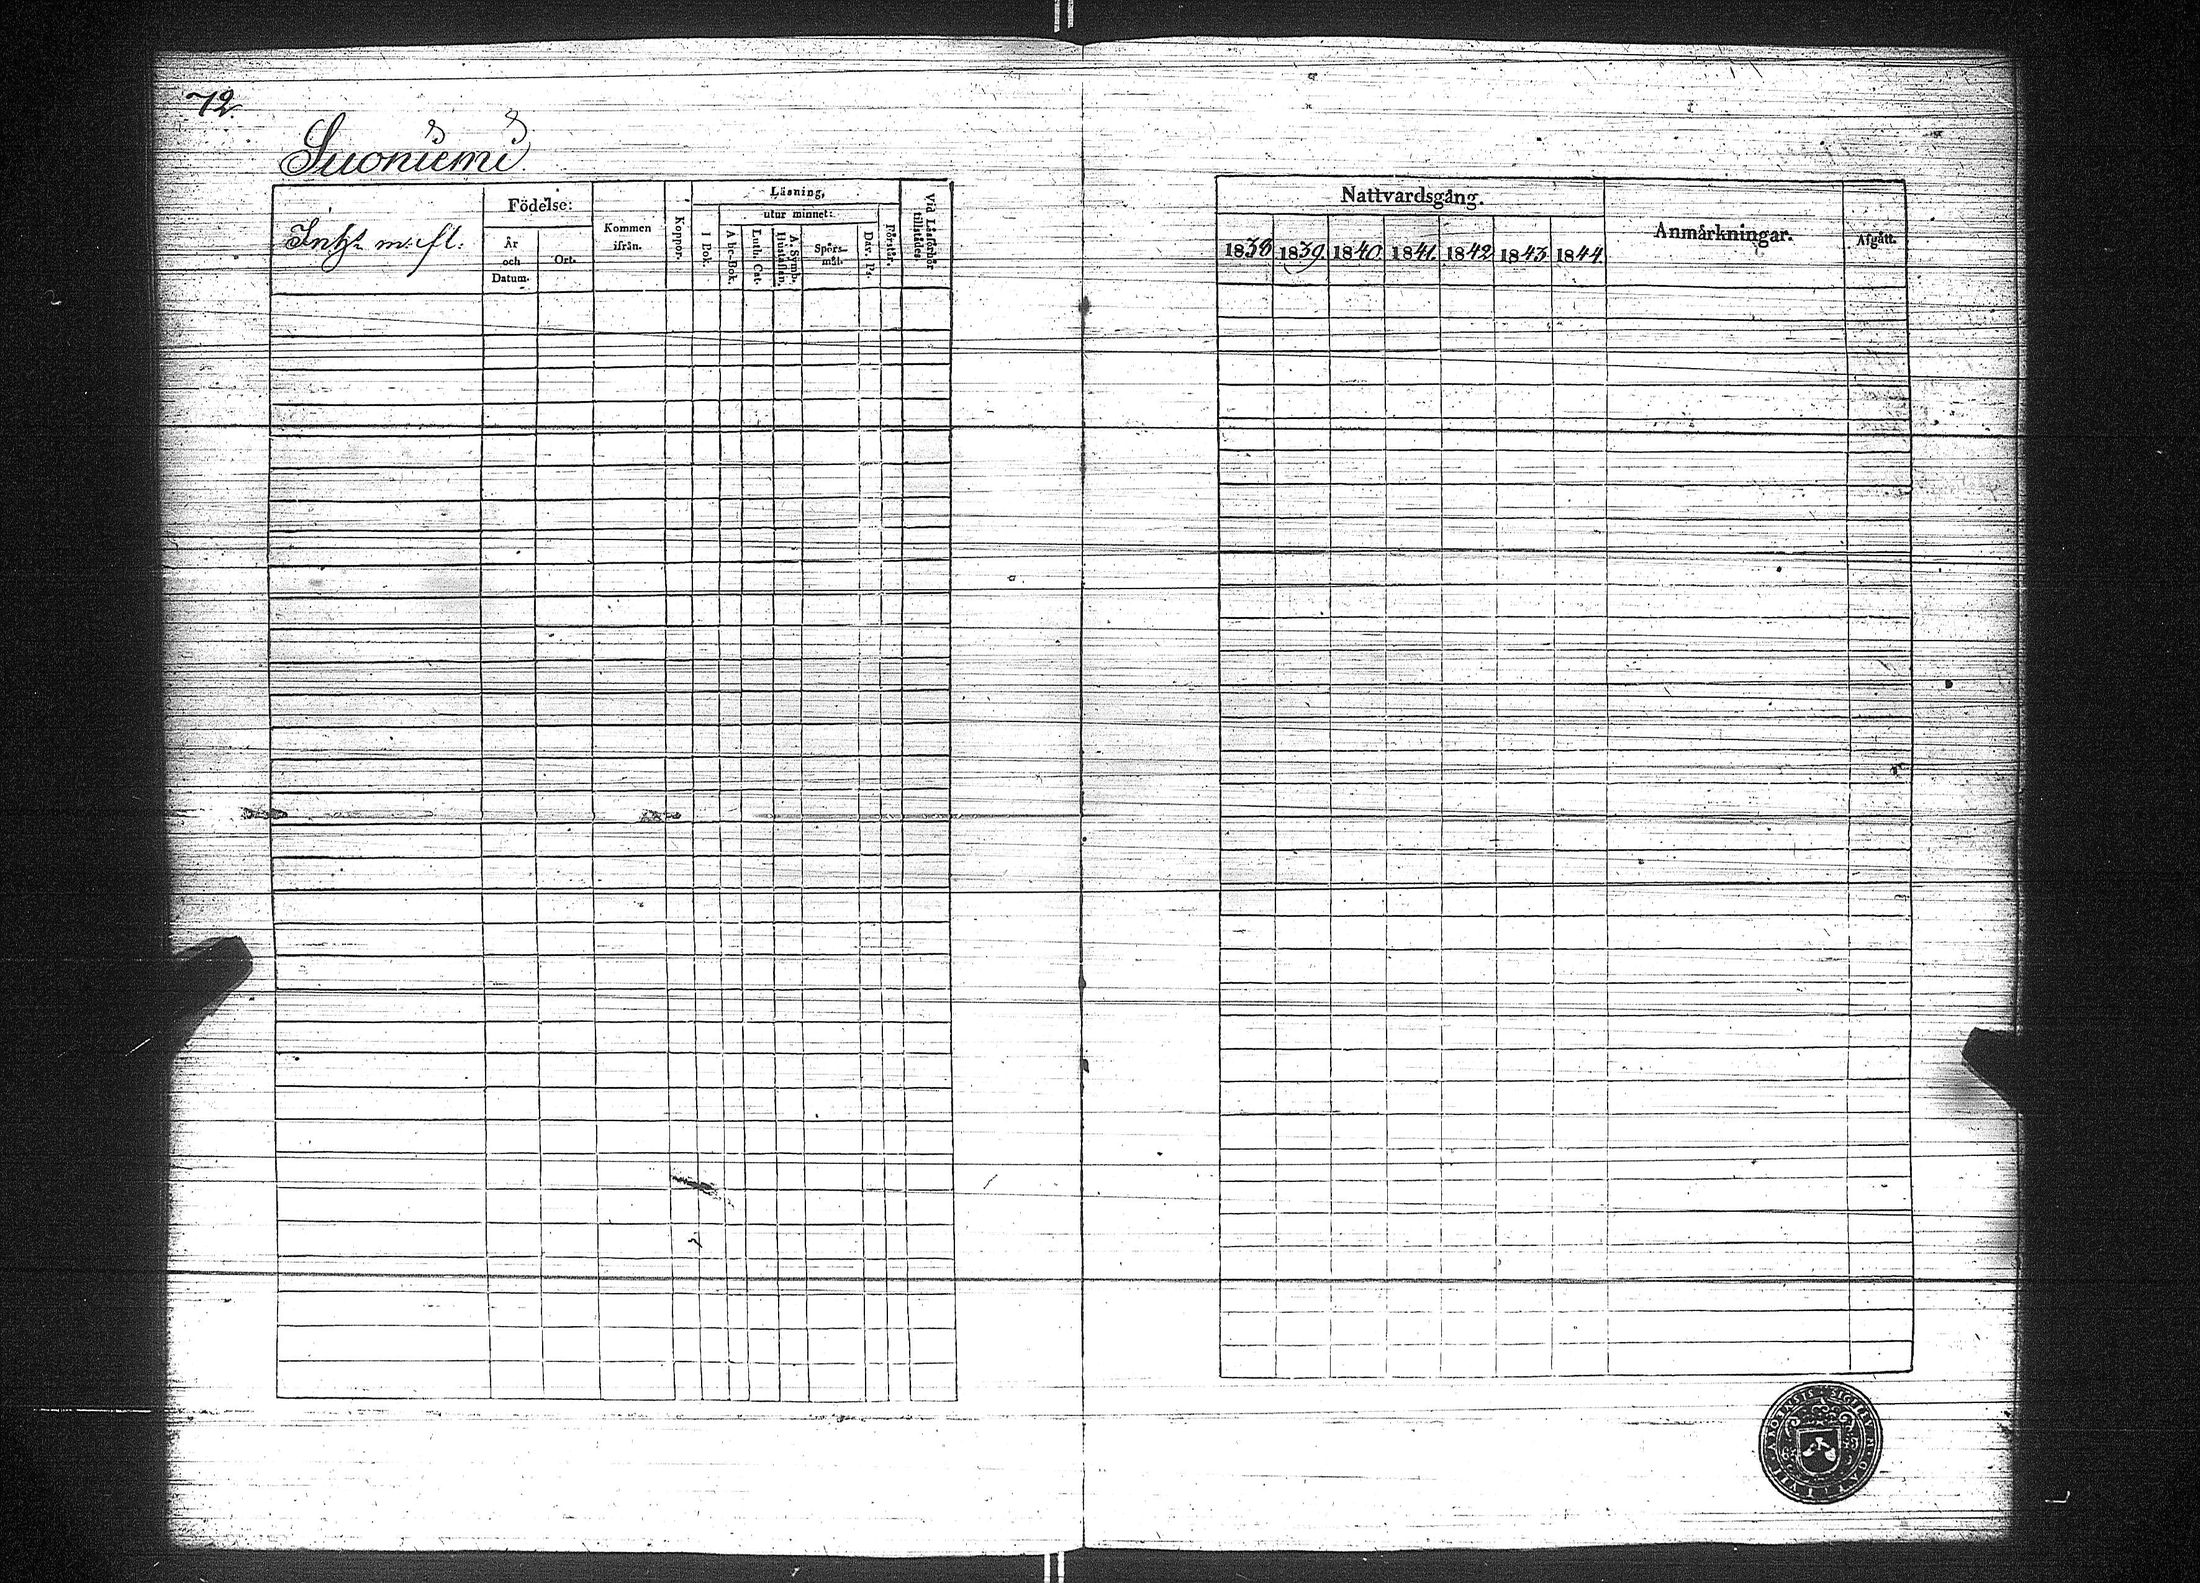 72.
Suoniemi
Inh: m: fl:
Födelse:
År och Datum.
Ort.
Kommen ifrån.
Koppor.
Läsning,
I Bok.
utur minnet:
Abc-Bok.
Luth. Cat.
A. Symb. Hustaflan.
Spörs-mål.
Dav. Ps.
Förstår.
Vid Läsförhör tillstädes
Nattvardsgång.
1838 1839. 1840 1841. 1842 1843 1844.
Anmärkningar.
Afgått.